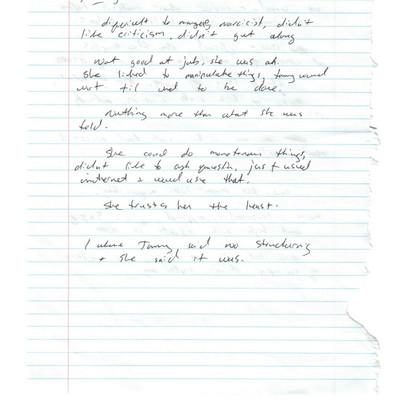 difficult to manage, narcicist, didn't
like criticism. didn't get along
Not good at job, she was ok.
She liked to manipulate things, Tammy would
not til had to be done.
Nothing more than what she was
told.
She could do monotonous things,
didn't like to ask question, just used
internet & would use that.
She trusts her the least.
1 where Tammy said no structuring
+ she said it was.